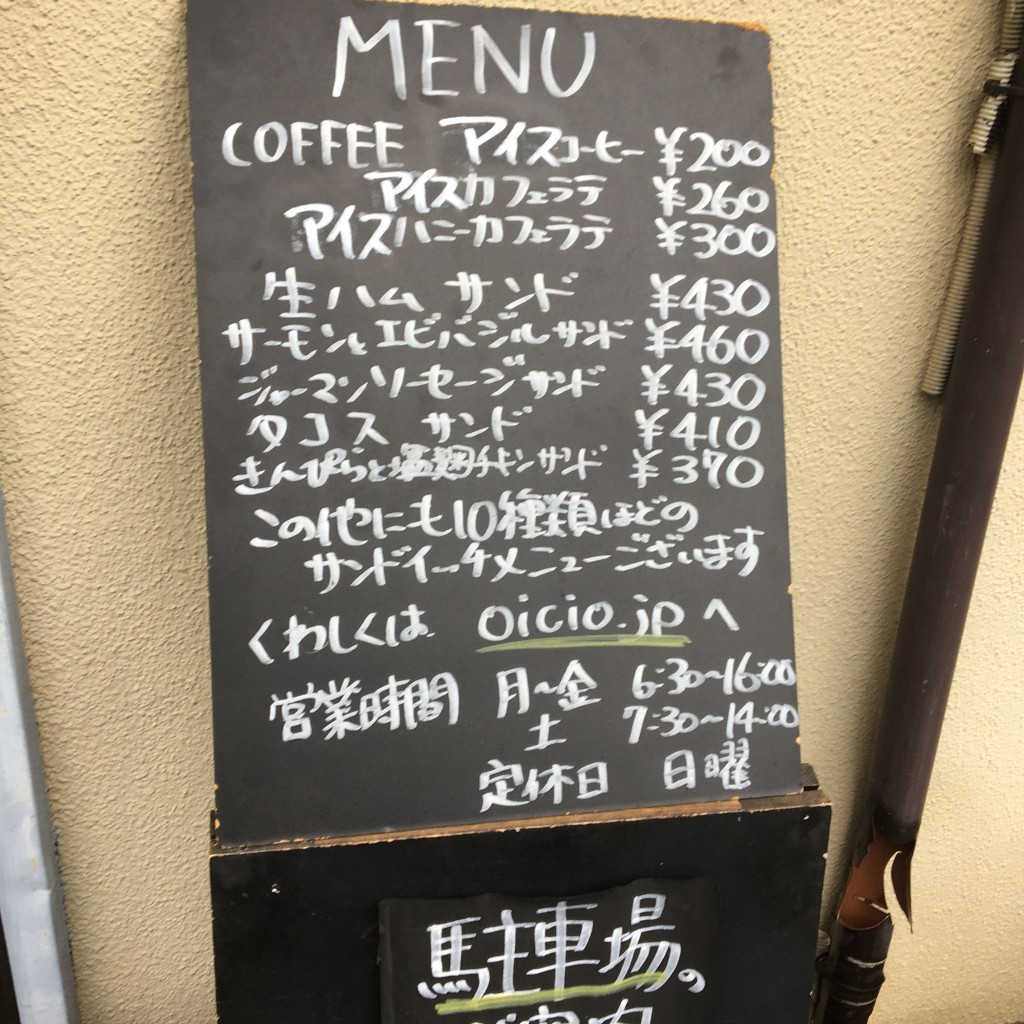 MENU
COFFEE アイスコーヒー ¥200
アイスカフェラテ ¥260
アイスハニーカフェラテ ¥300
生ハム サンド ¥430
サーモンとエビバジルサンド ¥460
ジャーマンソーセージサンド ¥430
タコス サンド ¥410
きんぴらと塩麹チキンサンド ¥370
この他にも10種類ほどの
サンドイッチメニューございます
くわしくは oicio.jpへ
営業時間 月~金 6:30~16:00
土 7:30~14:00
定休日 日曜
駐車場の
ご案内